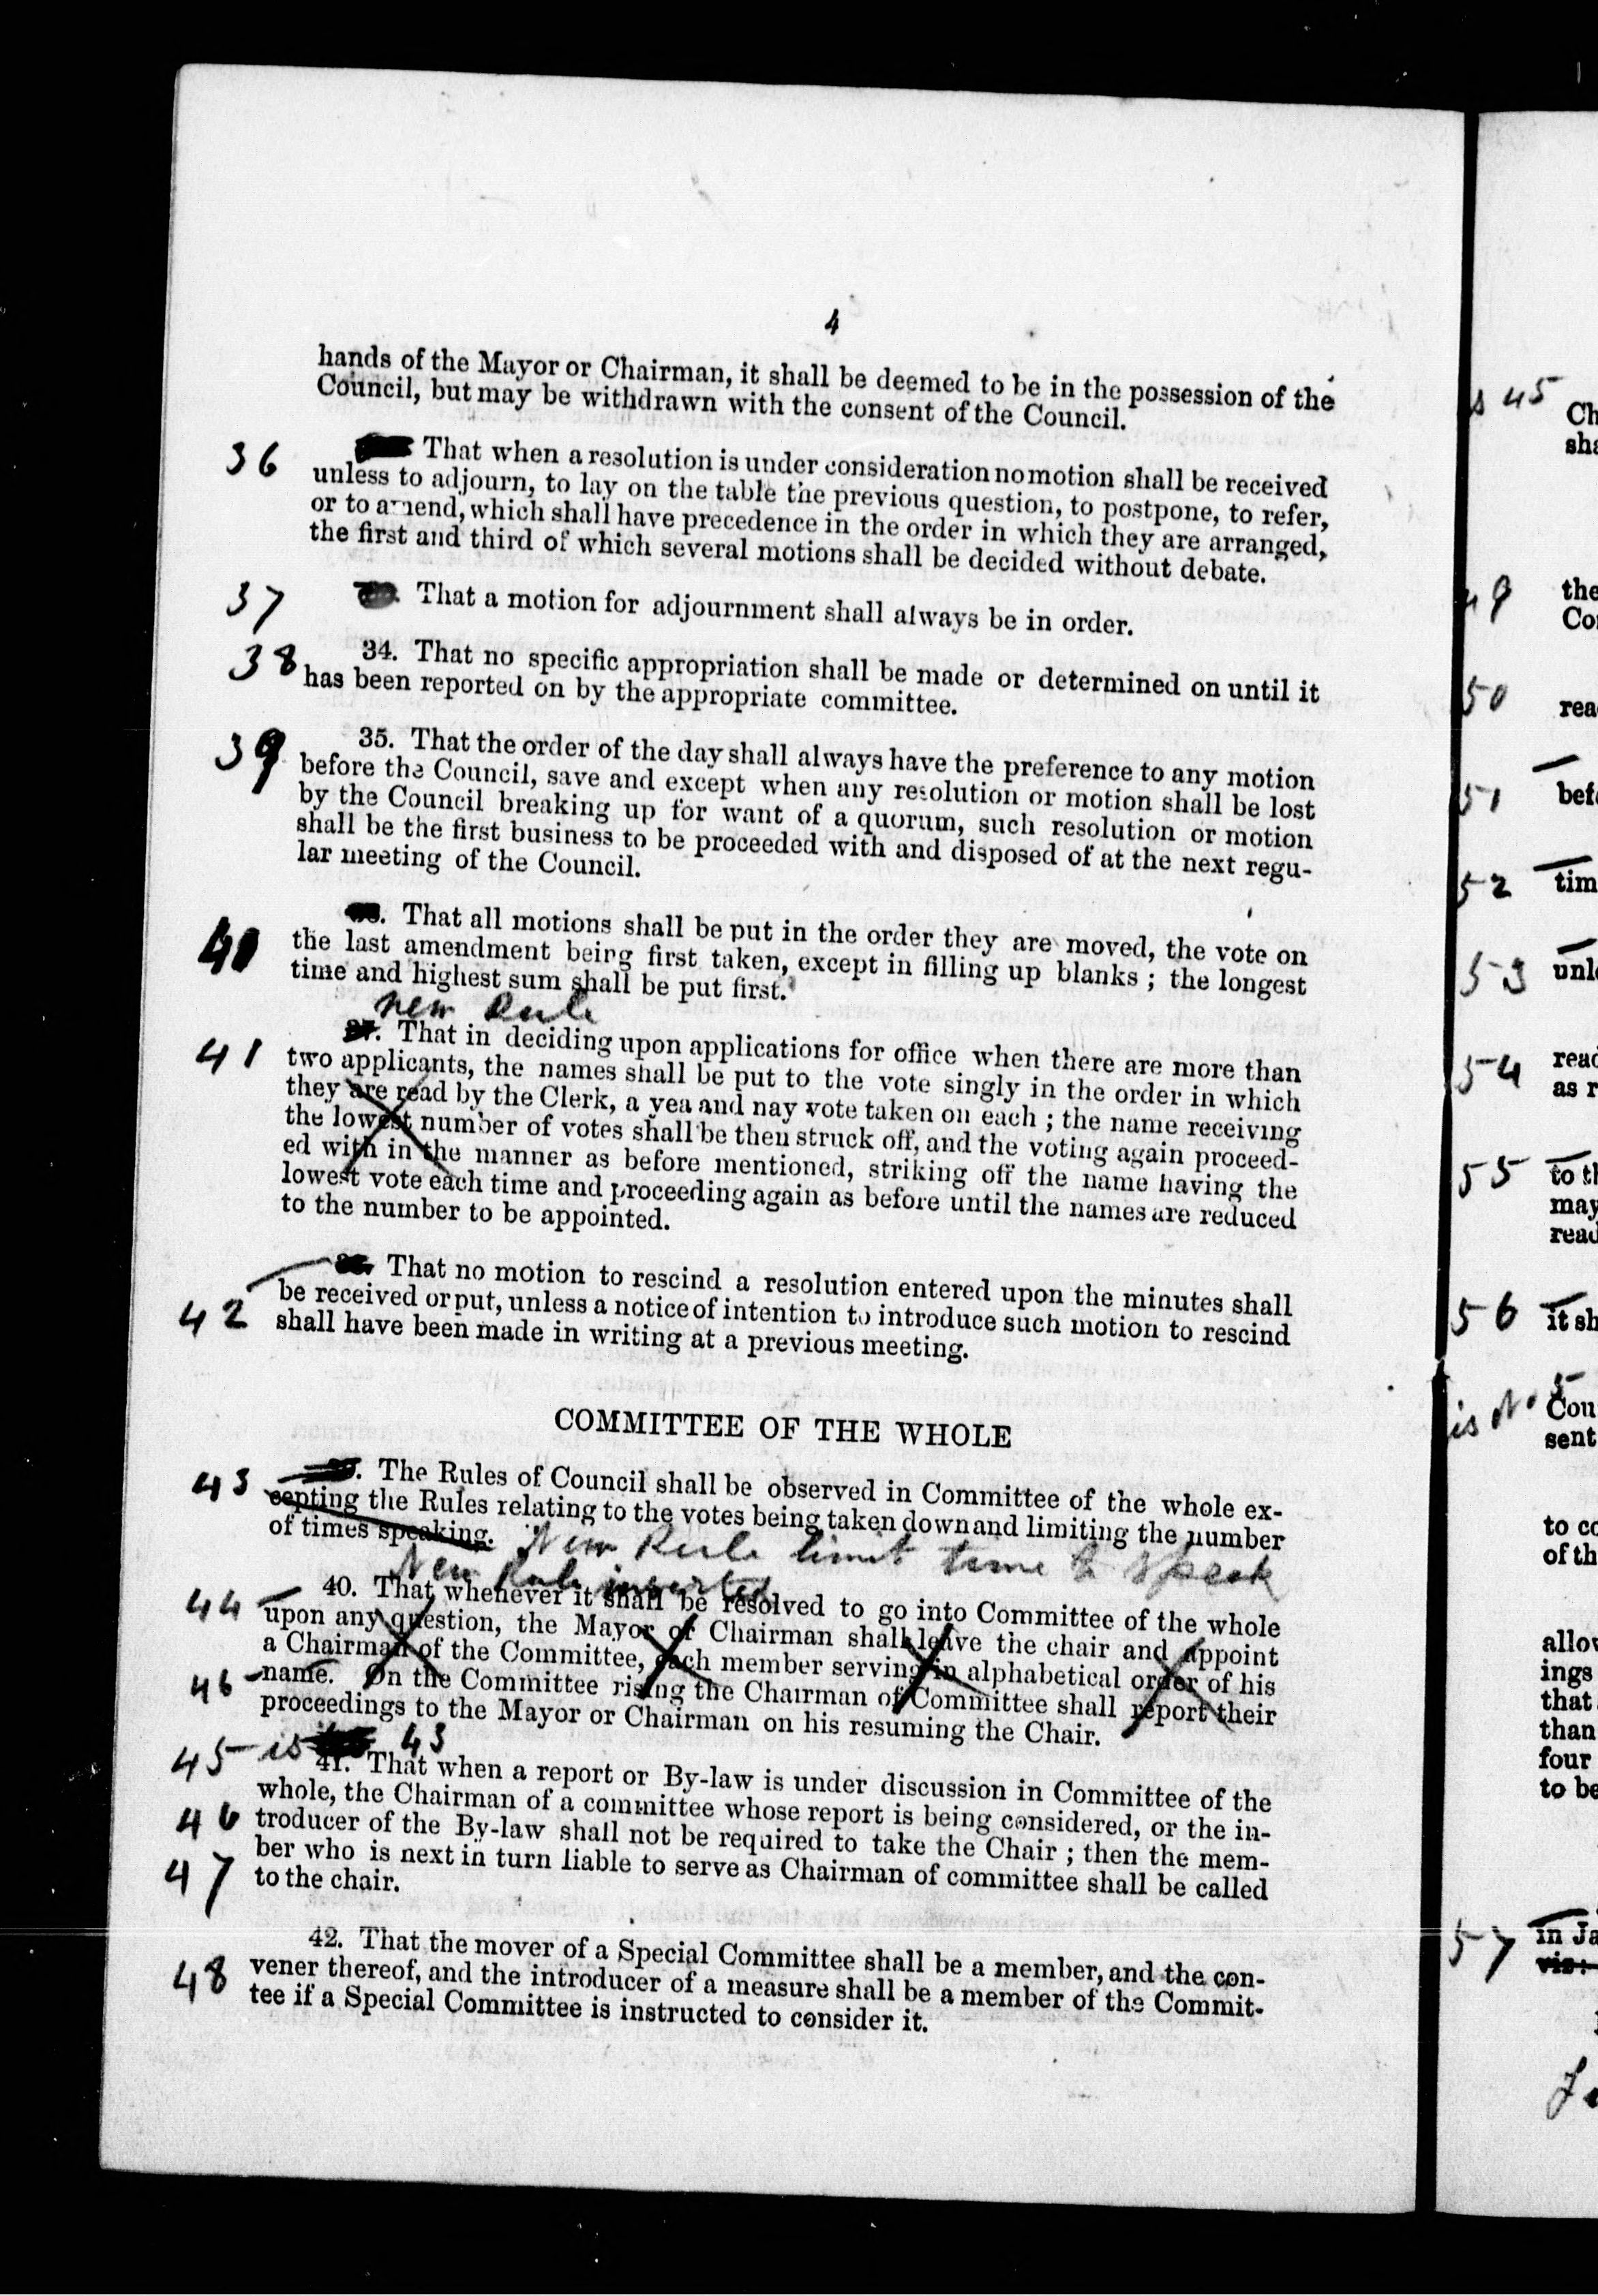 4
hands of the Mayor or Chairman, it shall be deemed to be in the possession of the
Council, but may be withdrawn with the consent of the Council.
36 That when a resolution is under consideration no motion shall be received
unless to adjourn, to lay on the table the previous question, to postpone, to refer,
or to amend, which shall have precedence in the order in which they are arranged,
the first and third of which several motions shall be decided without debate.
37 That a motion for adjournment shall always be in order.
38 34. That no specific appropriation shall be made or determined on until it
has been reported on by the appropriate committee.
39 35. That the order of the day shall always have the preference to any motion
before the Council, save and except when any resolution or motion shall be lost
by the Council breaking up for want of a quorum, such resolution or motion
shall be the first business to be proceeded with and disposed of at the next regu-
lar meeting of the Council.
40 That all motions shall be put in the order they are moved, the vote on
the last amendment being first taken, except in filling up blanks ; the longest
time and highest sum shall be put first.
new Rule
41 37. That in deciding upon applications for office when there are more than
two applicants, the names shall be put to the vote singly in the order in which
they are read by the Clerk, a yea and nay vote taken on each ; the name receiving
the lowest number of votes shall be then struck off, and the voting again proceed-
ed with in the manner as before mentioned, striking off the name having the
lowest vote each time and proceeding again as before until the names are reduced
to the number to be appointed.
That no motion to rescind a resolution entered upon the minutes shall
be received or put, unless a notice of intention to introduce such motion to rescind
42 shall have been made in writing at a previous meeting.
COMMITTEE OF THE WHOLE
43 The Rules of Council shall be observed in Committee of the whole ex-
cepting the Rules relating to the votes being taken down and limiting the number
of times speaking. New Rule limit time to speak
New Rule inserted
44 40. That whenever it shall be resolved to go into Committee of the whole
upon any question, the Mayor or Chairman shall leave the chair and appoint
a Chairman of the Committee, each member serving in alphabetical order of his
46 name. On the Committee rising the Chairman of Committee shall report their
proceedings to the Mayor or Chairman on his resuming the Chair.
45 is 43
41. That when a report or By-law is under discussion in Committee of the
whole, the Chairman of a committee whose report is being considered, or the in-
46 troducer of the By-law shall not be required to take the Chair ; then the mem-
ber who is next in turn liable to serve as Chairman of committee shall be called
47 to the chair.
42. That the mover of a Special Committee shall be a member, and the con-
48 vener thereof, and the introducer of a measure shall be a member of the Commit-
tee if a Special Committee is instructed to consider it.
45
Ch
sha
49 the
Co
50 rea
51 bef
52 tim
53 unl
54 read
as r
55 to th
may
read
56 it sh
5
is Cou
sent
to co
of th
allo
ings
that
than
four
to be
57 in Ja
viz: